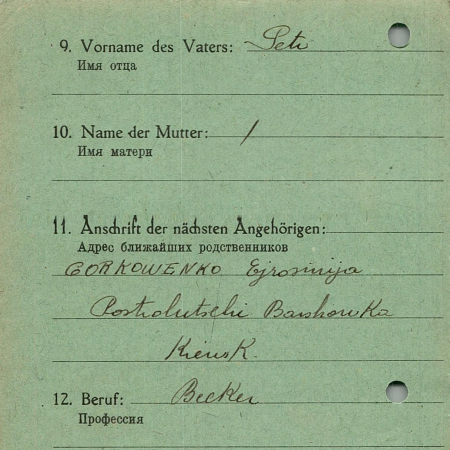 9. Vorname des Vaters: Petr
Имя отца
10. Name der Mutter: /
Имя матери
11. Anschrift der nächsten Angehörigen:
Адрес ближайших родственников
GORKOWENKO Ejrosinija
Kiewsk.
12. Beruf: Becker
Профессия